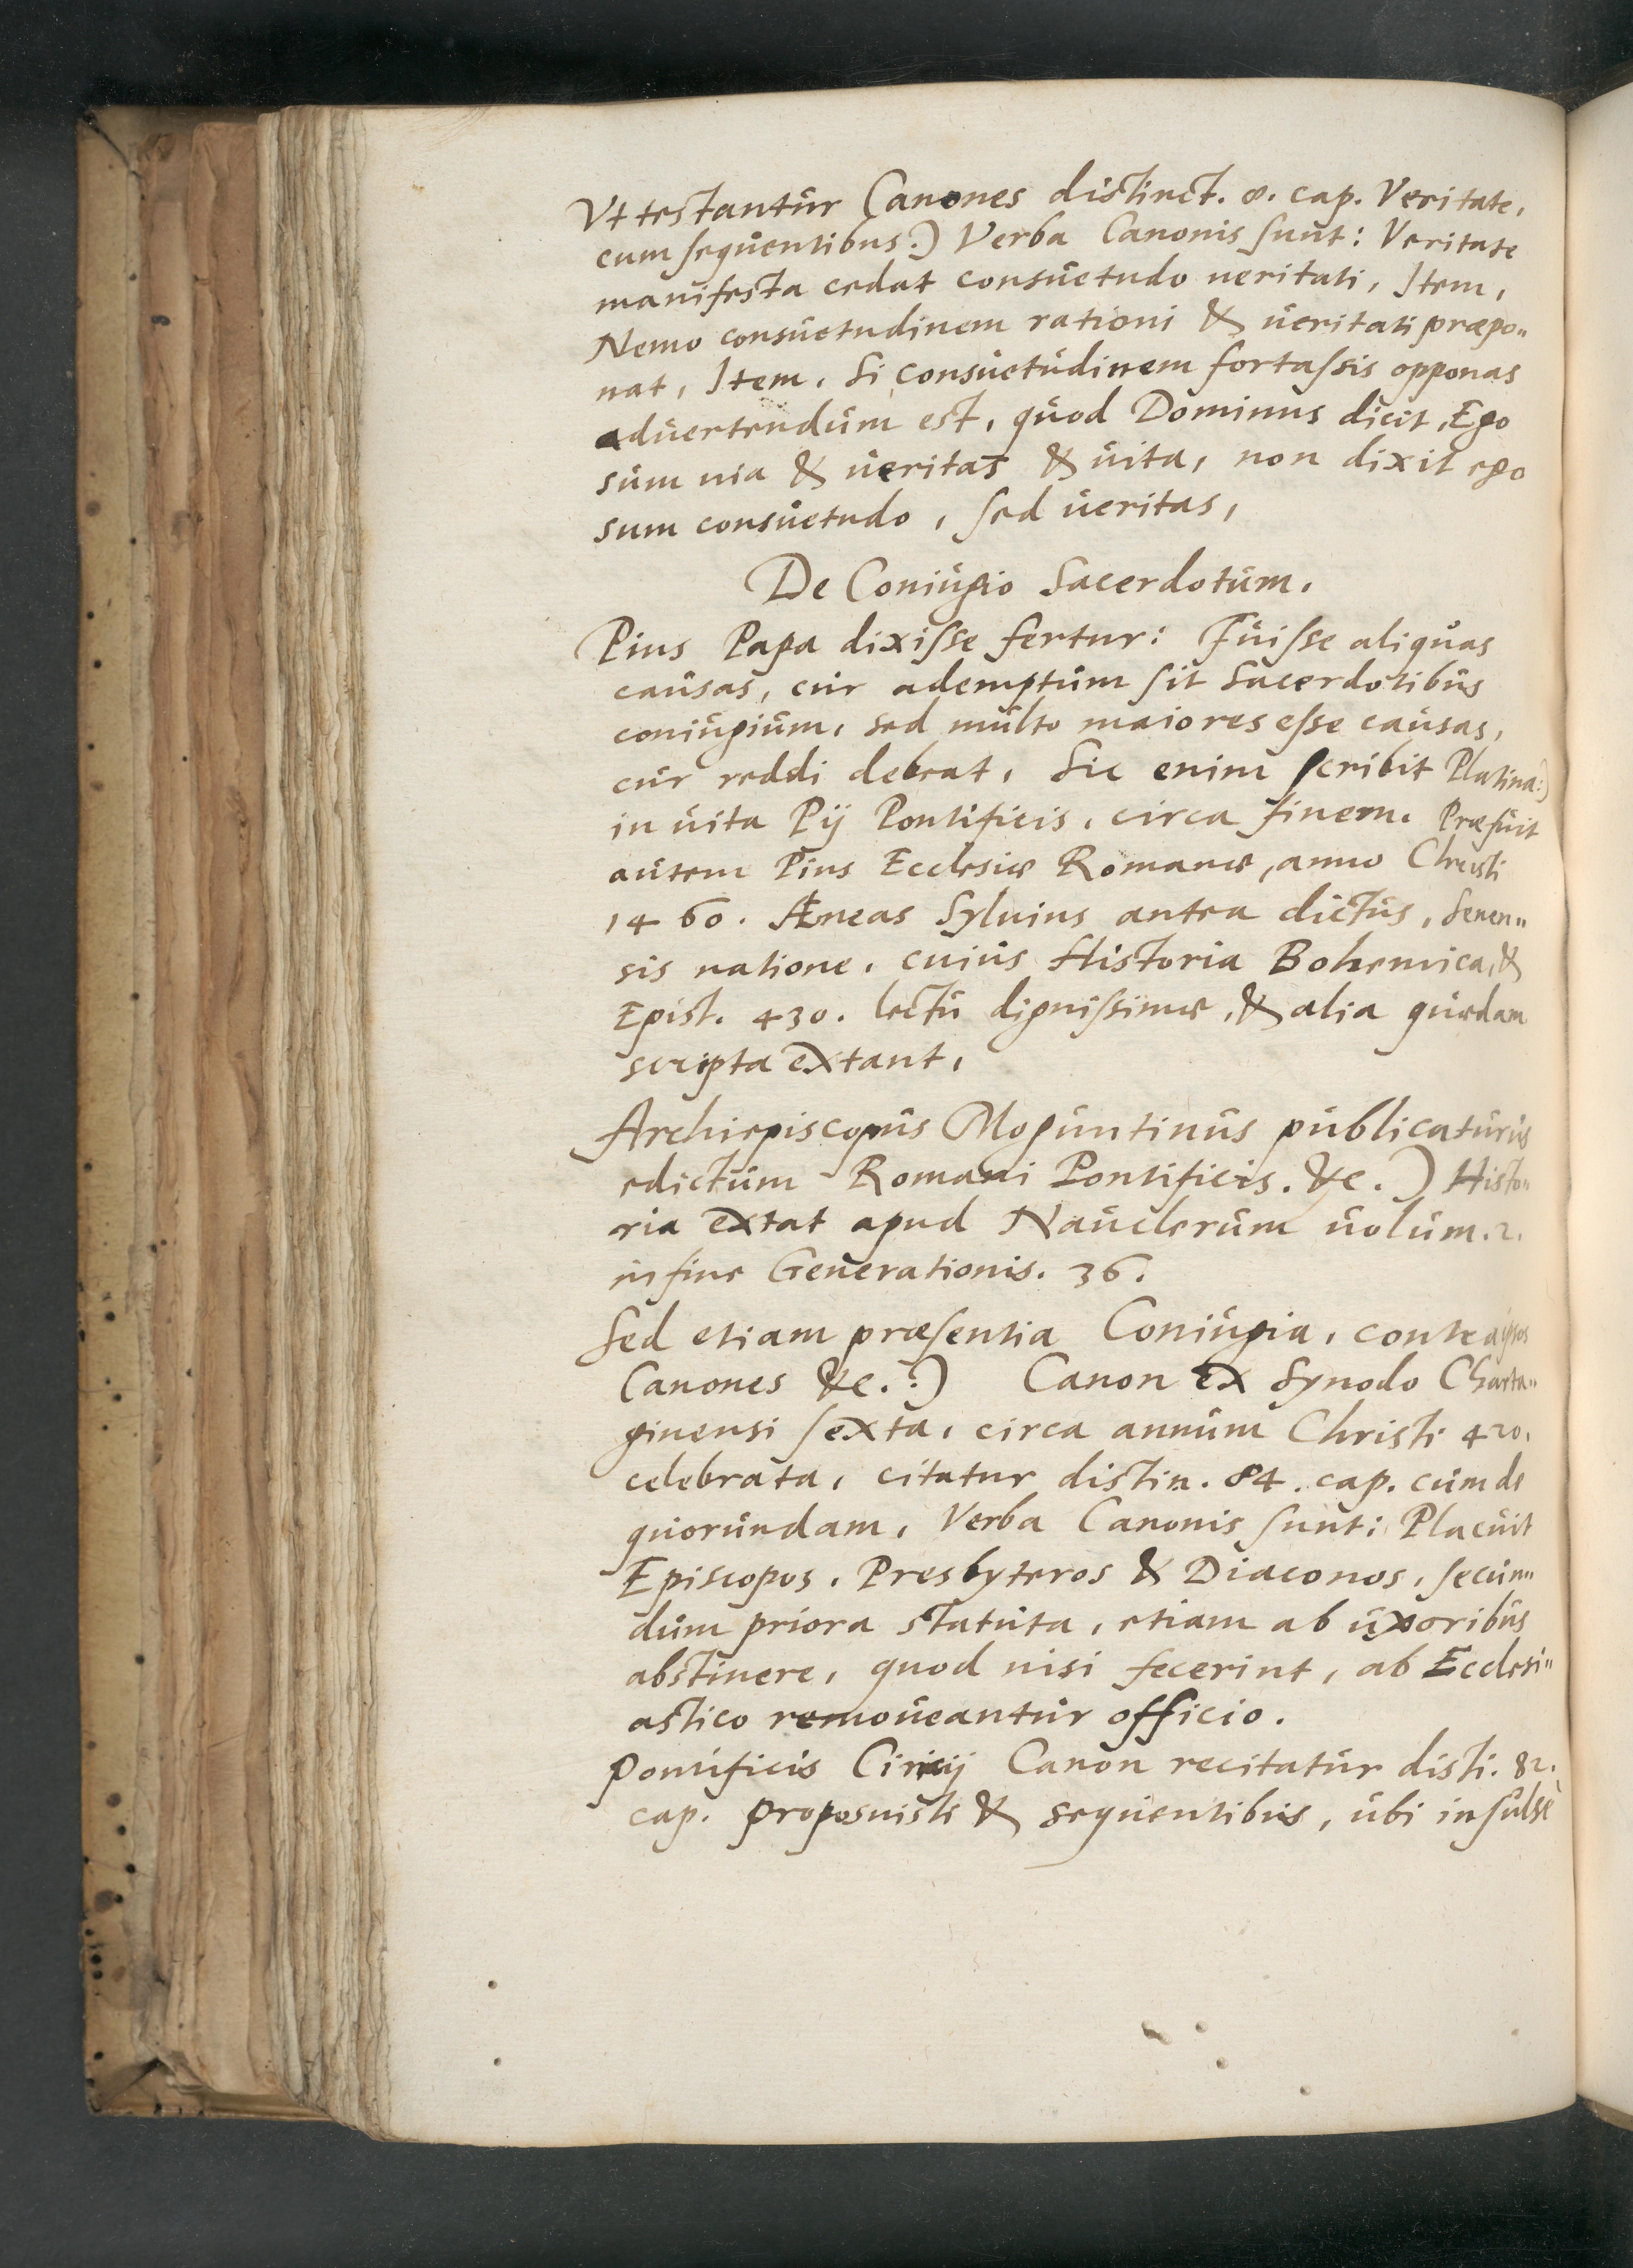 Vt testantur Canones distinct. 8. cap. Veritate,
cum sequentibus.) Verba Canonis sunt: Veritate
manifesta cedat consuetudo ueritati, Item,
Nemo consuetudinem rationi & ueritati præpo„
nat, Item, Si consuetudinem fortassis opponas
aduertendum est, quod Dominus dicit, Ego
sum uia & ueritas & uita, non dixit ego
sum consuetudo, sed ueritas,
De Coniugio Sacerdotum.
Pius Papa dixisse fertur: Fuisse aliquas
causas, cur ademptum sit Sacerdotibus
coniugium, sed multo maiores esse causas,
cur reddi debeat, Sic enim scribit Platina:)
in uita Pij Pontificis, circa finem. Præfuit
autem Pius Ecclesiæ Romanæ, anno Christi
1460. Æneas Syluius antea dictus, Senen„
sis natione, cuius Historia Bohemica, &
Epist. 430. lectu dignissimæ, & alia quædam
scripta extant,
Archiepiscopus Moguntinus publicaturus
edictum Romani Pontificis. &c.) Histo„
ria extat apud Nauclerum uolum. 2.
in fine Generationis. 36.
Sed etiam præsentia Coniugia, contra ipsos
Canones &c.:) Canon ex Synodo Charta„
ginensi sexta, circa annum Christi 420,
celebrata, citatur distin. 84. cap. cum de
quorundam, Verba Canonis sunt: Placuit
Episcopos, Presbyteros & Diaconos, secun„
dum priora statuta, etiam ab uxoribus
abstinere, quod nisi fecerint, ab Ecclesi„
astico remoueantur officio.
Pontificis Ciricij Canon recitatur disti. 82.
cap. proposuisti & sequentibus, ubi insulsè